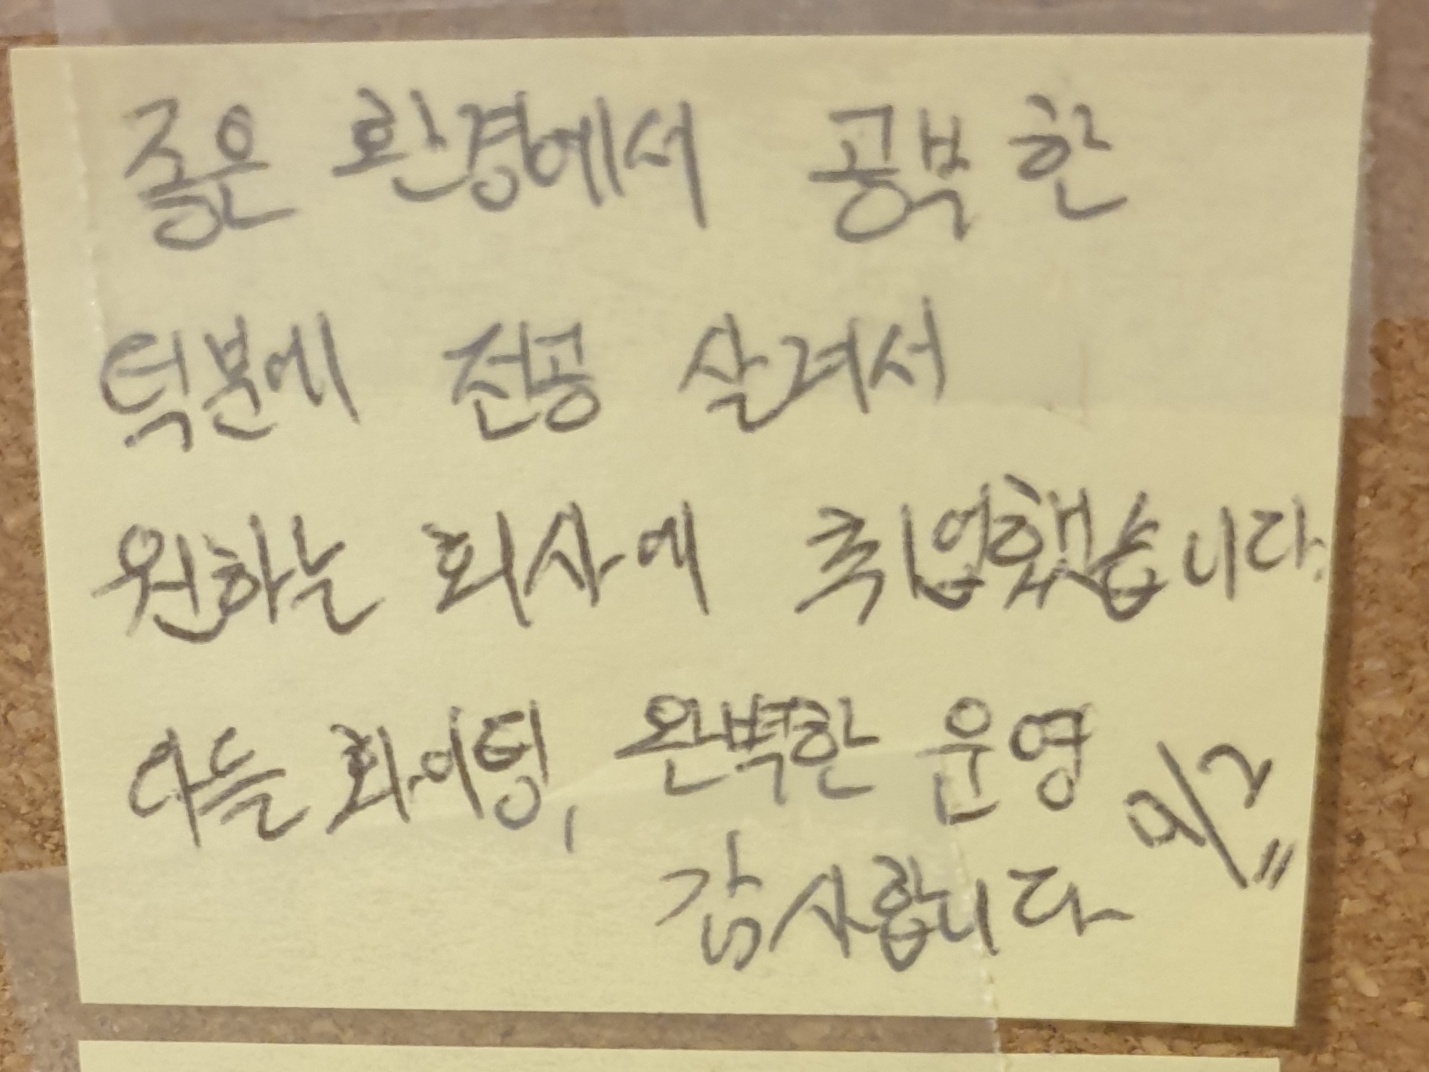 좋은 환경에서 공부한
덕분에 전공 살려서
원하는 회사에 취업했습니다.
다들 화이팅, 완벽한 운영
감사합니다